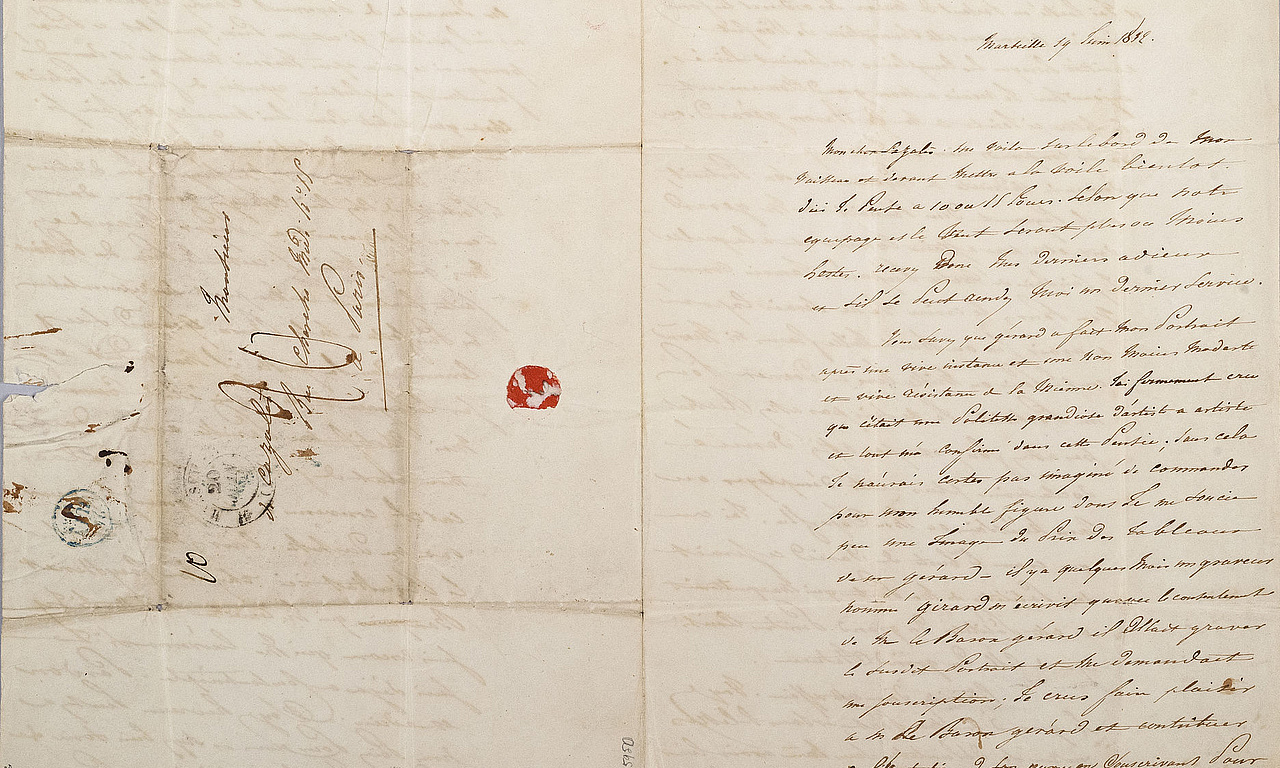 Monsieur
à Paris
Marseille 19 Juin 1832.
me voila sur le bord de mon
vaisseau et devant mettre a la voile bientot
je Pense a 10 ou 15 Jours. Selon que notre
equipage et le vent seront plus ou moins
recevez donc mes derniers adieux
et sil se Peut rendez moi un dernier service.
Vous savez que gérard a fait mon Portrait
après une vive instance et une non moins modeste
et vive résistance a la mienne. J'ai fermement cru
que c'était une Politesse grandiose d'artiste a artiste
et tout m'a confirmé dans cette Pensée; sans cela
Je n'aurais certes pas imaginé de commander
pour mon humble figure dont Je me soucie
peu une image du Prix des tableaux
de mr gérard - il y a quelques mois un graveur
nommé girard m'écrivit qu'avec le contentement
de Mr le Baron gérard il allait graver
le susdit Portrait et me demandait
une souscription; Je crus faire plaisir
a Mr le Baron gérard et contribuer
souscrivant Pour